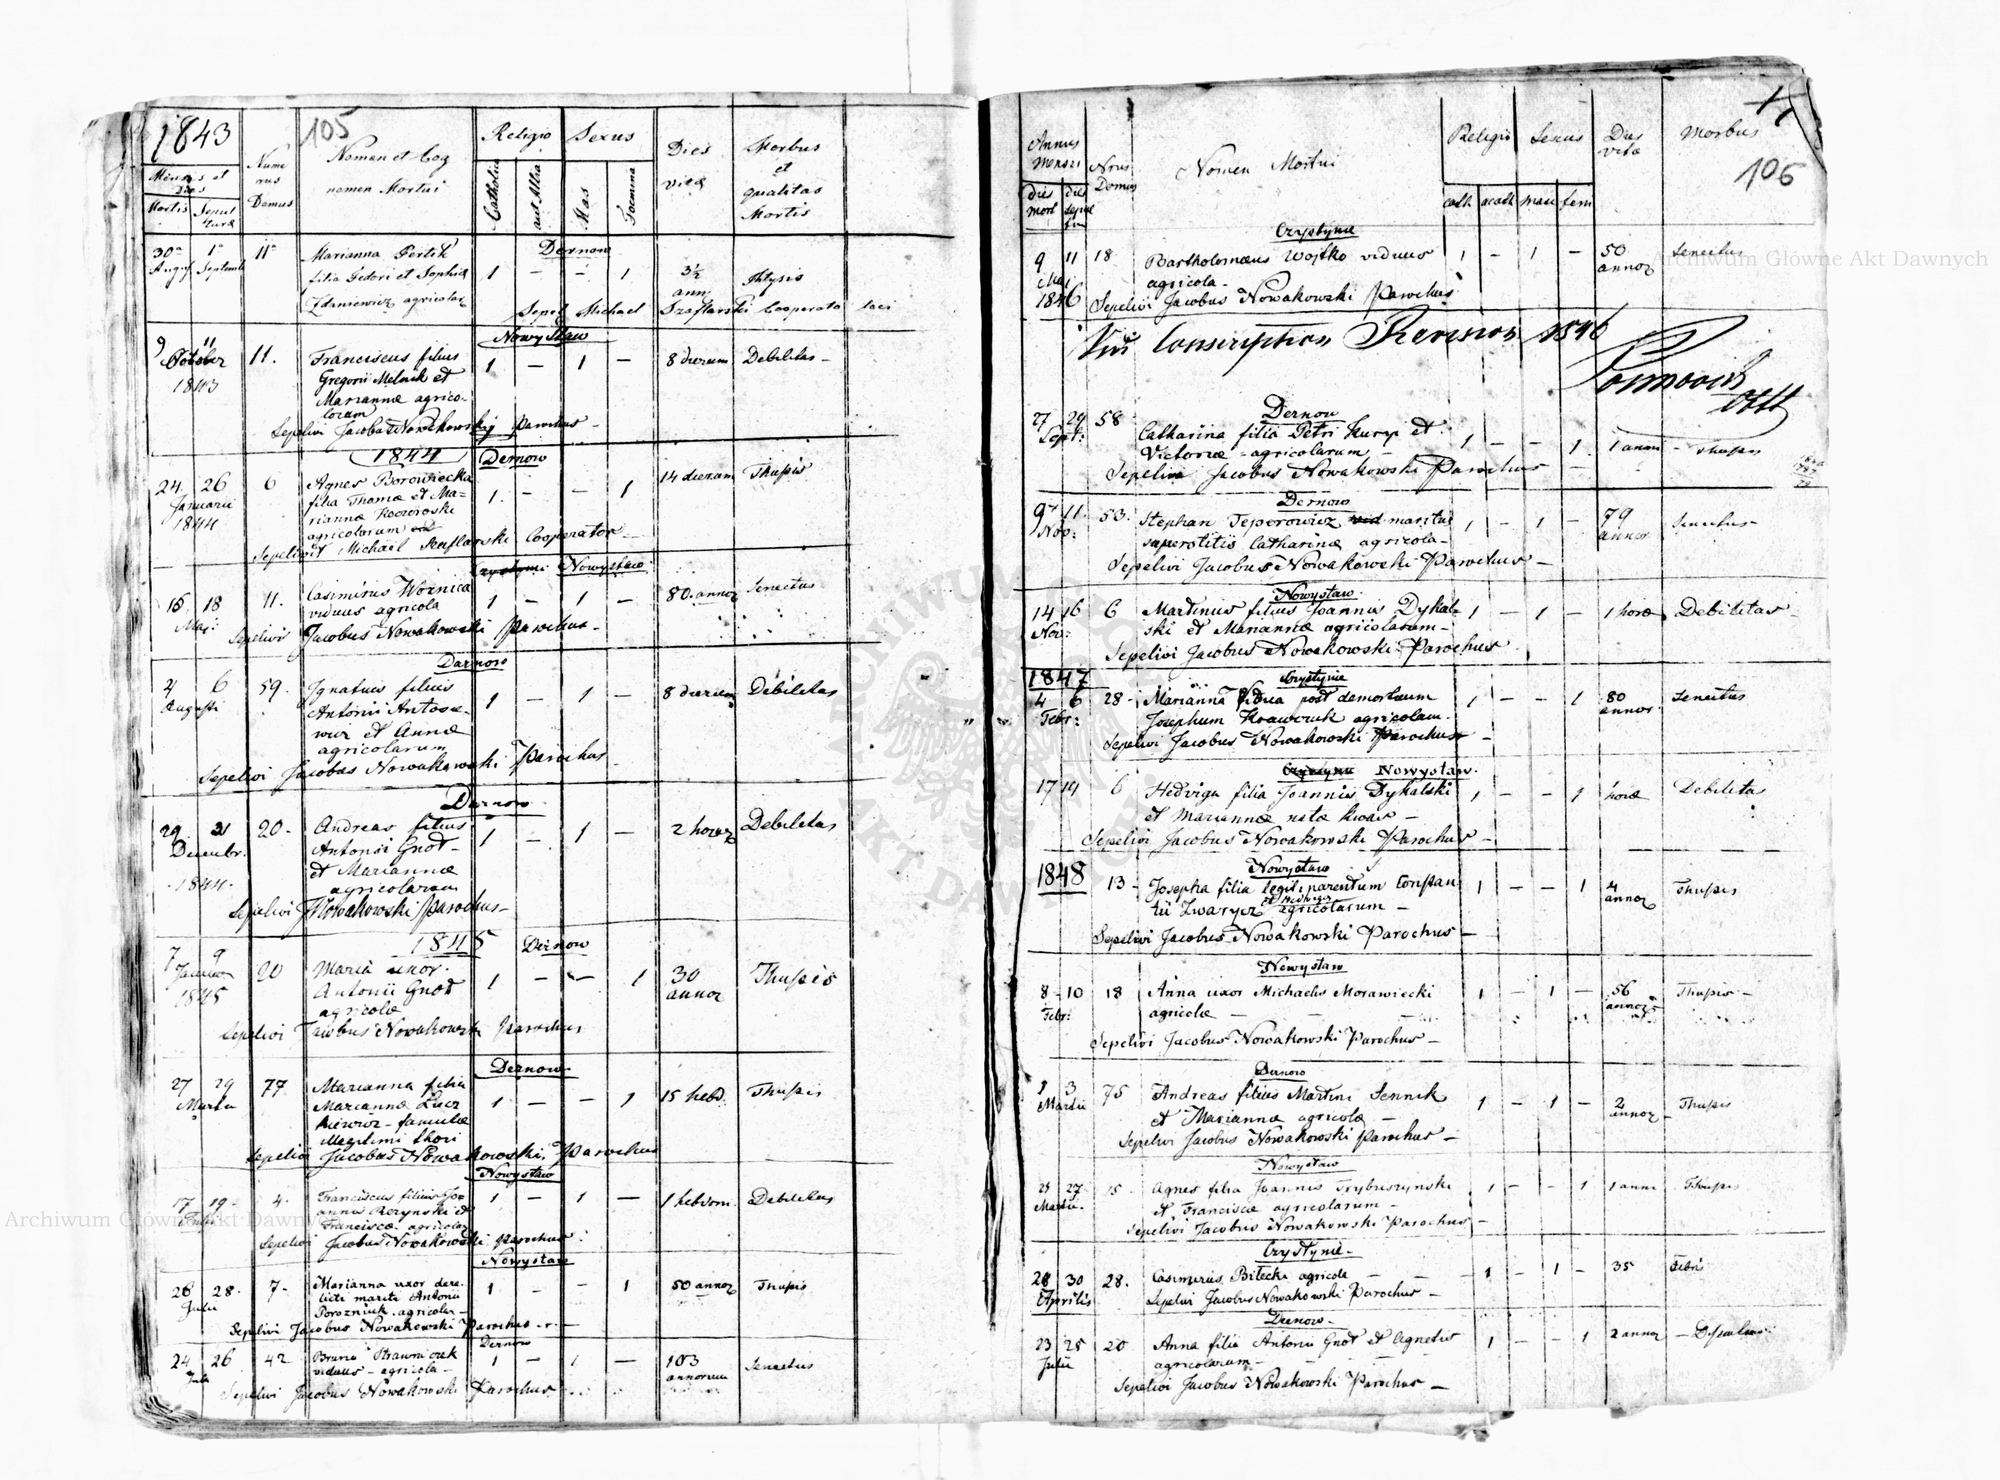 1843
105
Mensis et Dies
Mortis
Sepul turæ
Nume rus Domus
Nomen et Cog
nomen Mortui
Religio
Catholica
aut Allia
Sexus
Mas
Foemina
Dies vitæ
Morbus et qualitas Mortis
Dernow
30a 1a 11a Marianna Pertik 1 – – 1 3½ ann Phtysis
August Septemb filia Fedori et Sophia
Zdaniewicz agricolar
Sepel Michael Szaflarski Cooperator loci
Nowystaw
9 11 11. Franciscus filius 1 – 1 – 8 dierum Debilitas –
October Gregorii Melnik et
1843 Mariannæ agrico-
larum
Sepelivi Jacobus Nowakowski Parochus –
1844 Dernow
24 26 6 Agnes Borowiecka 1 – – 1 14 dierum Thusis
Januarii filia Thomæ et Ma-
1844 riannæ
agricolarum
Sepelivit Michael Szaflarski Cooperator –
Czystynie Nowystaw
16 18 11. Casimirus Woznica 1 – 1 – 80 annor Senectus
Maj: viduus agricola
Sepelivi Jacobus Nowakowski Parochus –
Darnow
4 6 59. Ignatius filius 1 – 1 – 8 dierum Debilitas
Augusti Antonii Antose-
wicz et Annæ
agricolarum
Sepelivi Jacobus Nowakowski Parochus
Dernow
29 31 20 – Andreas filius 1 – 1 – 2 horar Debilitas
Decembr. Antonii Gnot –
1844 et Mariannæ
agricolarum
Sepelivi J Nowakowski parochus –
1845 Dernow
7 9 20 Maria uxor 1 – – 1 30 annor Thusis
Januar Antonii Gnot
1845 agricolæ
Sepelivi Jacobus Nowakowski Parochus
Dernow
27 29 77 Marianna filia 1 – – 1 15 hebd. Thusis
Martii Mariannæ Lucz
kiewicz – famulæ
illegitimi thori
Sepelivi Jacobus Nowakowski, Parochus
Nowystaw
17 19 – 4. Franciscus filius Jo- 1 – 1 – 1 hebdom. Debilitas
annis Rczynski et
Franciscæ agricolar
Sepelivi Jacobus Nowakowski parochus
Nowystaw
26 28. 7 – Marianna uxor dere- 1 – – 1 50 annor Thusis
Julii licti mariti Antonii
Porozniuk agricolæ –
Sepelivi Jacobus Nowakowski Parochus –
Dernow
24 26 42 1 – 1 – 103 annorum Senectus
viduus – agricola –
Sepelivi Jacobus Nowakowski Parochus
106
Annus mensis
dies mort
dies sepul
Nrus Domus
Nomen Mortui
Religio
cath acath
Sexus
mas fem
Dies vitæ
Morbus
Czystynie
9 11 18 Bartholomæus Wojtko viduus 1 – 1 – 50 annor Senectus
Maj agricola –
1846 Sepelivi Jacobus Nowakowski Parochus
Conscription Revision 1846
Dernow
27 29 58 Catharina filia Petri Kurp et 1 – – 1 1 anni – Thusis
Sept: Victoriæ – agricolarum –
Sepelivi Jacobus Nowakowski Parochus –
Dernow
9 11 53. Stephan Teperowicz vid maritus 1 – 1 – 79 annor Senectus –
Nov: superstitis Catharinæ agricola –
Sepelivi Jacobus Nowakowski Parochus –
Nowystaw
14 16 6 Martinus filius Joannis Dykal- 1 – 1 – 1 horæ Debilitas –
Nov: ski et Mariannæ agricolarum –
Sepelivi Jacobus Nowakowski Parochus
1847 Czystynie
4 6 28 – Marianna vidua post demortuum 1 – – 1 80 annor Senectus
Febr: Josephum Krawczuk agricolam –
Sepelivi Jacobus Nowakowski Parochus –
Czystynie Nowystaw.
17 19 6 Hedviga filia Joannis Dykalski 1 – – 1 horæ Debilitas
et Mariannæ nata Kwas –
Sepelivi Jacobus Nowakowski Parochus –
1848 Nowystaw
13 – Josepha filia legit: parentum Constan 1 – – 1 4 annor Thusis
tii Zwarycz et Hedvigis agricolarum –
Sepelivi Jacobus Nowakowski Parochus –
Nowystaw
8 – 10 18 Anna uxor Michaelis Morawiecki 1 – 1 – 56 annor Thusis –
Febr: agricolæ –
Sepelivi Jacobus Nowakowski Parochus –
Dernow
1 3 75 Andreas filius Martini Sennik 1 – 1 – 2 annor – Thusis
Martii et Mariannæ agricolæ –
Sepelivi Jacobus Nowakowski Parochus –
Nowystaw
25 27 15 – Agnes filia Joannis Trybuszynski 1 – – 1 1 anni Thusis
Martii – et Franciscæ agricolarum –
Sepelivi Jacobus Nowakowski Parochus –
Czystynie –
28 30 28. Casimirus Bilecki agricola – 1 – 1 – 35 Febris
Aprilis Sepelivi Jacobus Nowakowski Parochus –
Dernow –
23 25 20 Anna filia Antonii Gnot et Agnetis 1 – – 1 2 annor
Julii agricolarum –
Sepelivi Jacobus Nowakowski Parochus –
Archiwum Główne Akt Dawnych
Archiwum Główne Akt Dawnych